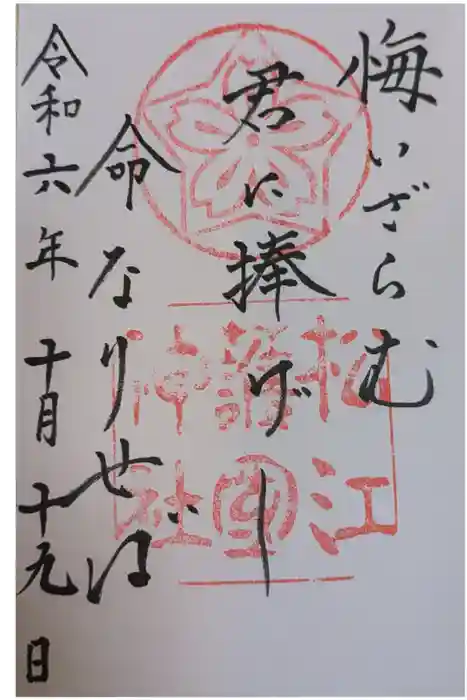 悔いざらむ
君に捧げし
命なりせば
令和六年十月十九日
松江
護國
神社